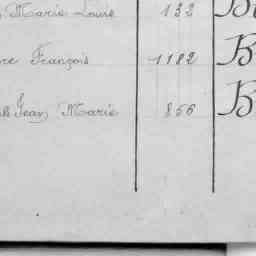 Marie Louise 132 B
re François 1182 B
Jean Marie 856 B